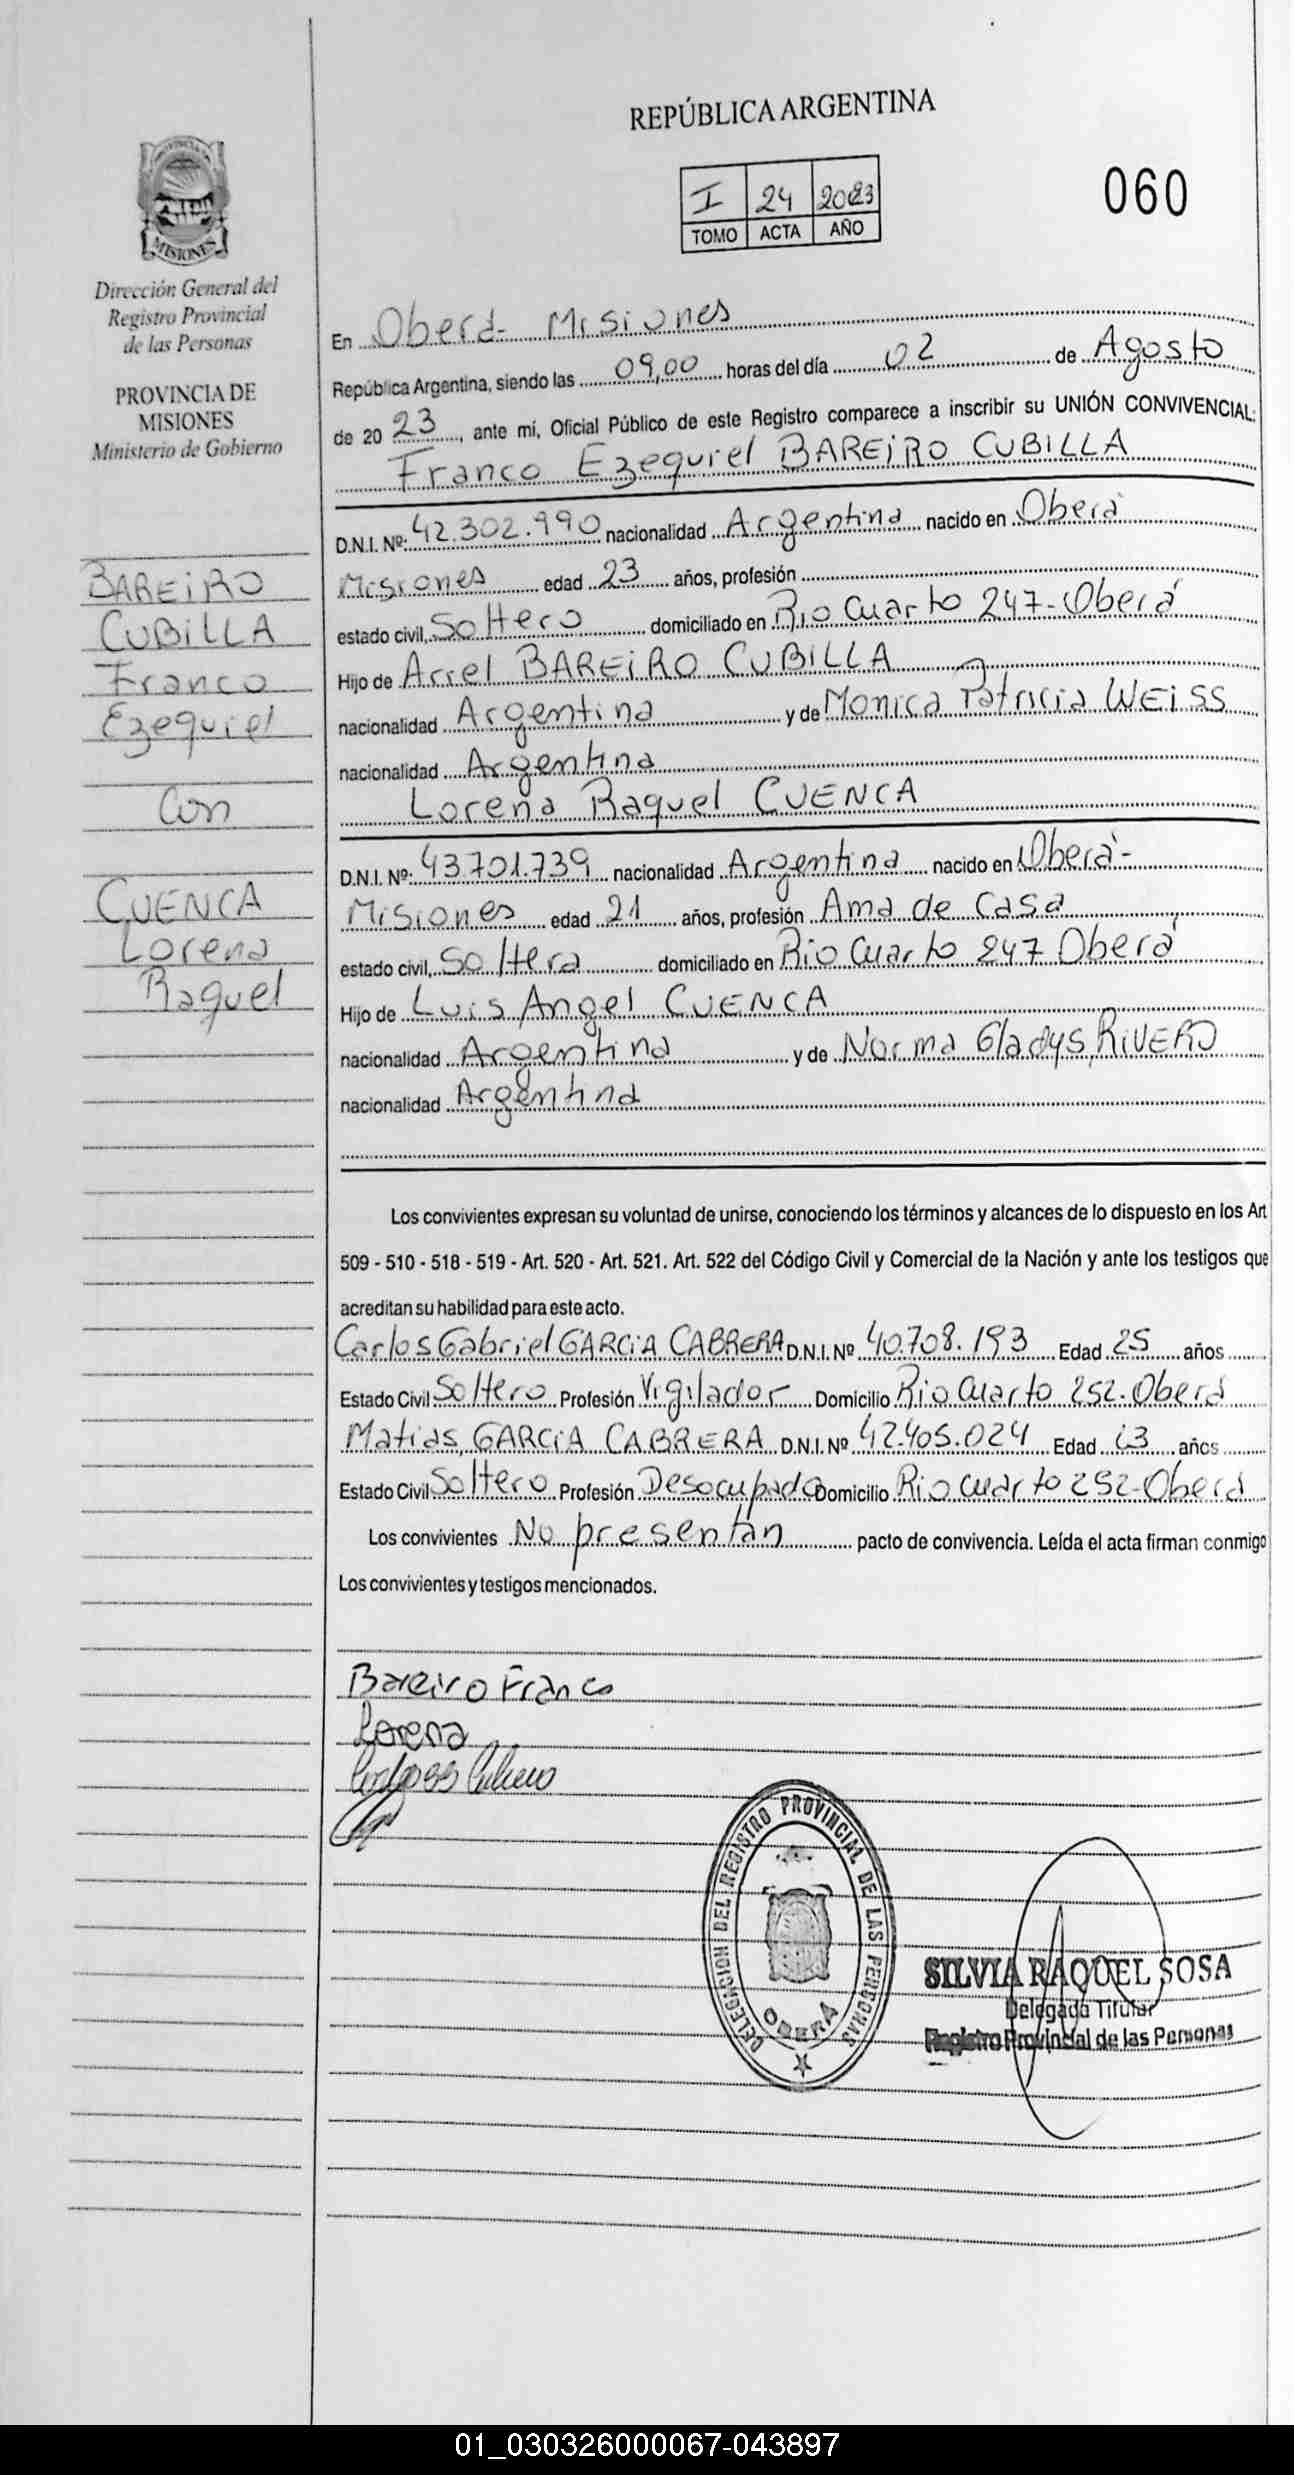 REPÚBLICA ARGENTINA
I 24 2023
TOMO ACTA AÑO
060
PROVINCIA DE MISIONES
Dirección General del
Registro Provincial
de las Personas
PROVINCIA DE
MISIONES
Ministerio de Gobierno
BAREIRO
CUBILLA
Franco
Ezequiel
Con
CUENCA
Lorena
Raquel
En Oberá- Misiones
República Argentina, siendo las 09,00 horas del día 02 de Agosto
de 20 23, ante mí, Oficial Público de este Registro comparece a inscribir su UNIÓN CONVIVENCIAL:
Franco Ezequiel BAREIRO CUBILLA
D.N.I. Nº: 42.302.990 nacionalidad Argentina nacido en Oberá
Misiones edad 23 años, profesión
estado civil, Soltero domiciliado en Rio Cuarto 247-Oberá
Hijo de Ariel BAREIRO CUBILLA
nacionalidad Argentina y de Monica Patricia WEISS
nacionalidad Argentina
Lorena Raquel CUENCA
D.N.I. Nº: 43.701.739 nacionalidad Argentina nacido en Oberá-
Misiones edad 21 años, profesión Ama de Casa
estado civil, Soltera domiciliado en Rio Cuarto 247 Oberá
Hijo de Luis Angel CUENCA
nacionalidad Argentina y de Norma Gladys RIVERO
nacionalidad Argentina
Los convivientes expresan su voluntad de unirse, conociendo los términos y alcances de lo dispuesto en los Art
509 - 510 - 518 - 519 - Art. 520 - Art. 521. Art. 522 del Código Civil y Comercial de la Nación y ante los testigos que
acreditan su habilidad para este acto.
Carlos Gabriel GARCIA CABRERA D.N.I. Nº 40.708.193 Edad 25 años
Estado Civil Soltero Profesión Vigilador Domicilio Rio Cuarto 252-Oberá
Matias GARCIA CABRERA D.N.I. Nº 42.405.024 Edad 23 años
Estado Civil Soltero Profesión Desocupado Domicilio Rio Cuarto 252-Oberá
Los convivientes No presentan pacto de convivencia. Leída el acta firman conmigo
Los convivientes y testigos mencionados.
Bareiro Franco
Lorena
DELEGACION DEL REGISTRO PROVINCIAL DE LAS PERSONAS
OBERÁ
SILVIA RAQUEL SOSA
Delegada Titular
Registro Provincial de las Personas
01_030326000067-043897